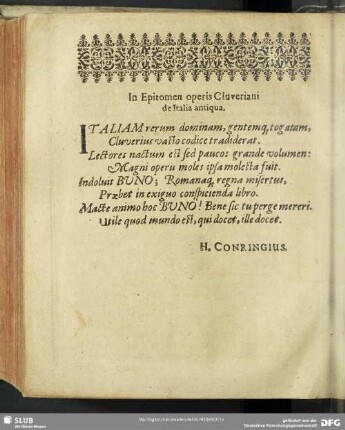 In Epitomen operis Cluveriani
de Italia antiqua.
ITALIAM rerum dominam, gentemq; togatam,
Cluverius vasto codice tradiderat.
Lectores nactum est sed paucos grande volumen:
Magni operis moles ipsa molesta fuit.
Indoluit BUNO; Romanaq; regna misertus,
Præbet in exiguo conspicienda libro.
Macte animo hoc BUNO! Bene sic tu perge mereri.
Utile quod mundo est, qui docet, ille docet.
H. CONRINGIUS.
SLUB
Wir führen Wissen.
gefördert von der
Deutschen Forschungsgemeinschaft
DFG